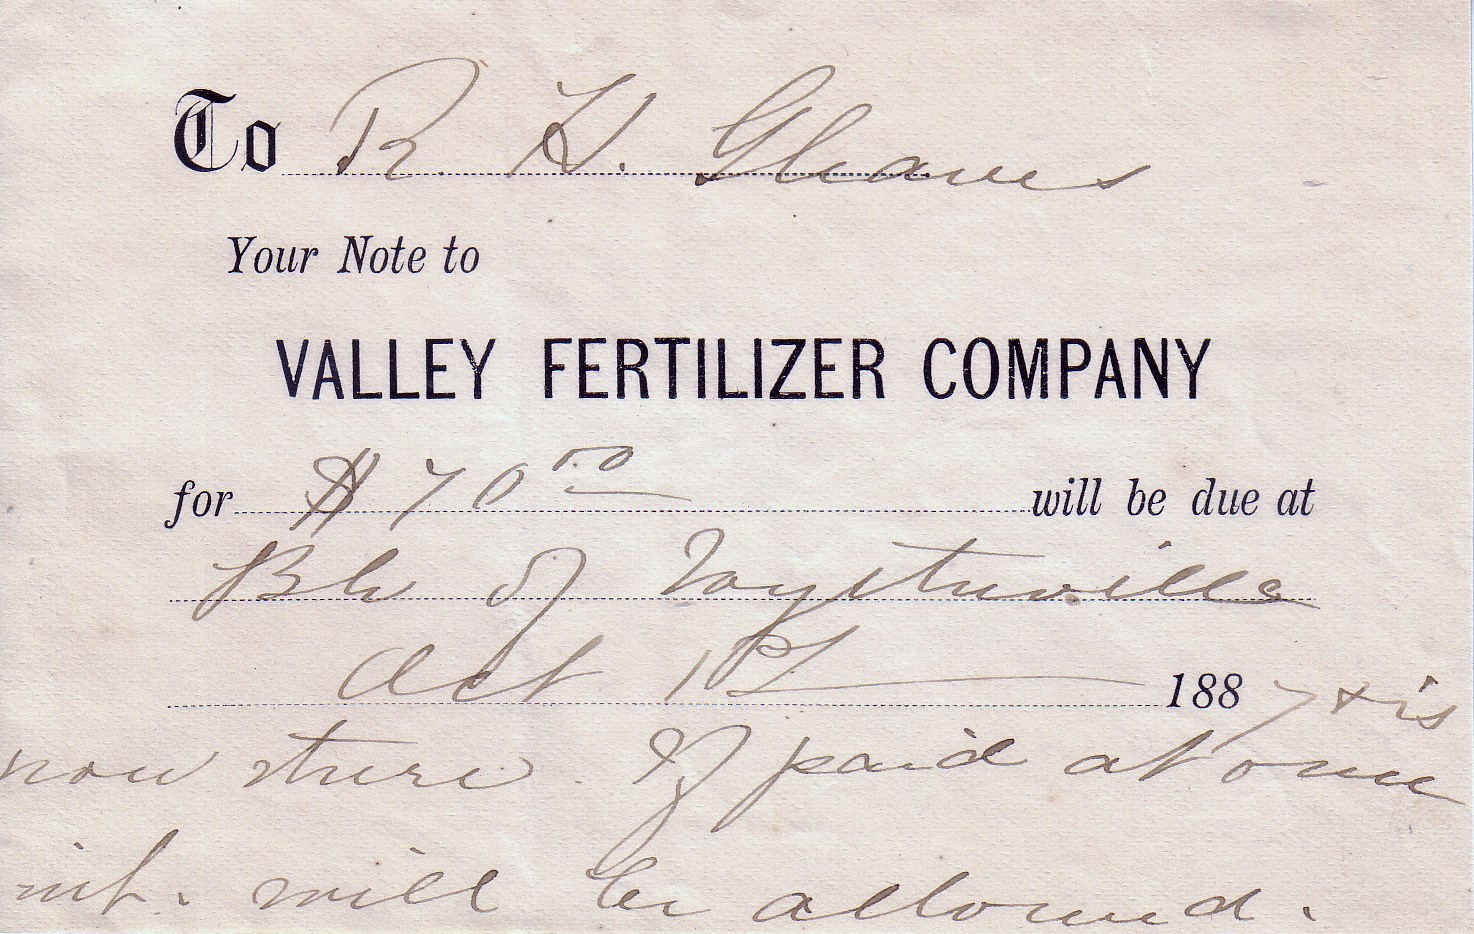 To R. H. Gleaves
Your Note to
VALLEY FERTILIZER COMPANY
for $70 00 will be due at
Bk of Wytheville
Oct 1st 1887 & is
now there. If paid at once
int. will be allowed.